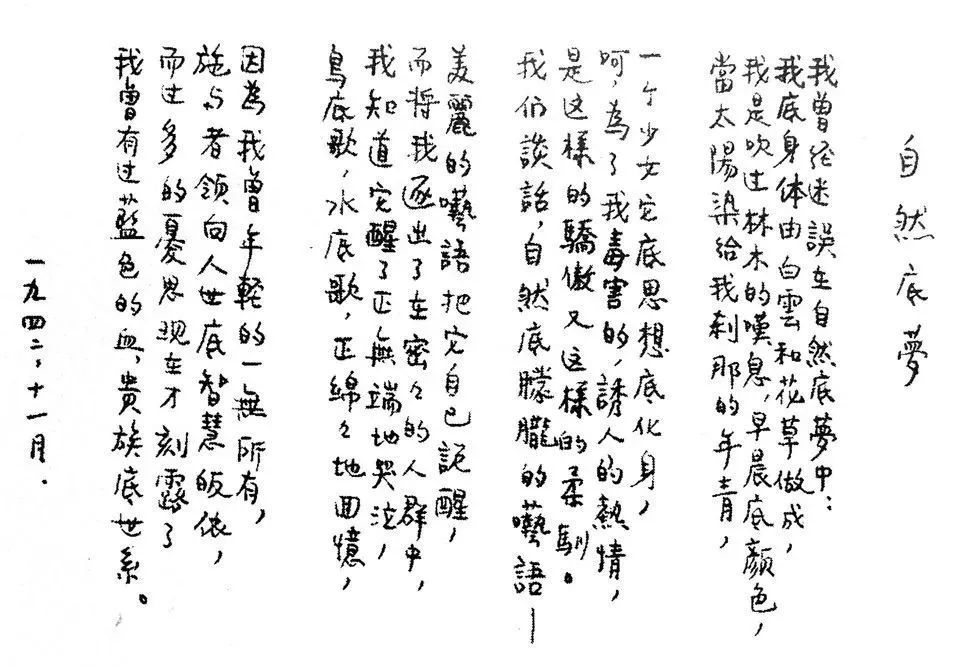 自然底夢
我曾经迷誤在自然底夢中:
我底身体由白雲和花草做成,
我是吹过林木的嘆息,早晨底顔色,
當太陽染給我刹那的年青,
一个少女它底思想底化身,
呵,為了我毒害的,誘人的熱情,
是这樣的驕傲又这樣的柔馴。
我们談話,自然底朦朧的囈語—
美麗的囈語把它自己説醒,
而将我逐出了在密々的人群中,
我知道它醒了正無端地哭泣,
鳥底歌,水底歌,正綿々地回憶,
因為我曾年輕的一無所有,
施与者領向人世底智慧皈依,
而过多的憂思现在才刻露了
我曾有过藍色的血,貴族底世系。
一九四二,十一月.